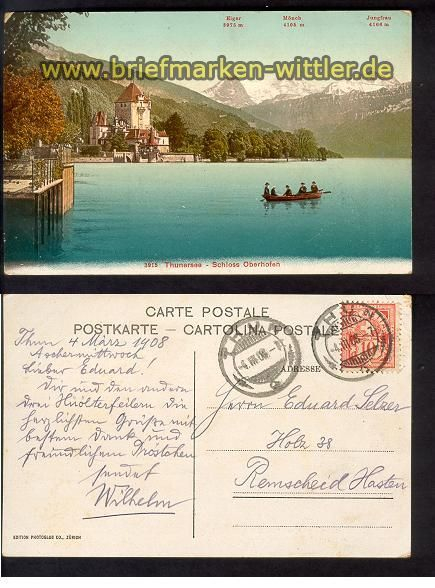 Eiger Mönch Jungfrau
3975 m 4105 m 4166 m
www.briefmarken-wittler.de
3915 Thunersee - Schloss Oberhofen
CARTE POSTALE
POSTKARTE - CARTOLINA POSTALE
ADRESSE
Thun 4 März 1908
Aschermittwoch
Lieber Eduard!
Dir und den anderen
drei die
herzlichsten Grüße mit
bestem Dank und
freundlichem Pröstchen
sendet
Wilhelm
Herrn Eduard Selzer
Holz 38
Remscheid Hasten
THUN
EDITION PHOTOGLOB CO., ZÜRICH